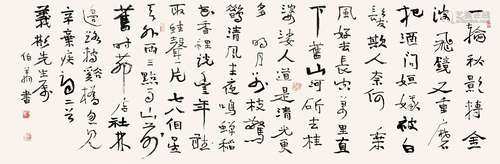 一輪秋影轉金
波飛鏡又重磨
把酒問姮娥被白
髮欺人奈何 乘
風好去長空萬里直
下看山河斫去桂
婆娑人道是清光更
多 明月別枝驚
鵲清風半夜鳴蟬稻
花香裡說豐年聽
取蛙聲一片 七八個星
天外兩三點雨山前
舊時茅店社林
邊路轉谿橋忽見
辛棄疾詞二首
義彬先生屬
伯翁書